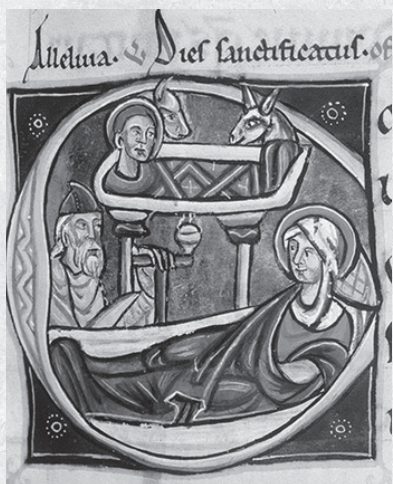 Alleluia. ℣ Dies sanctificatus. of